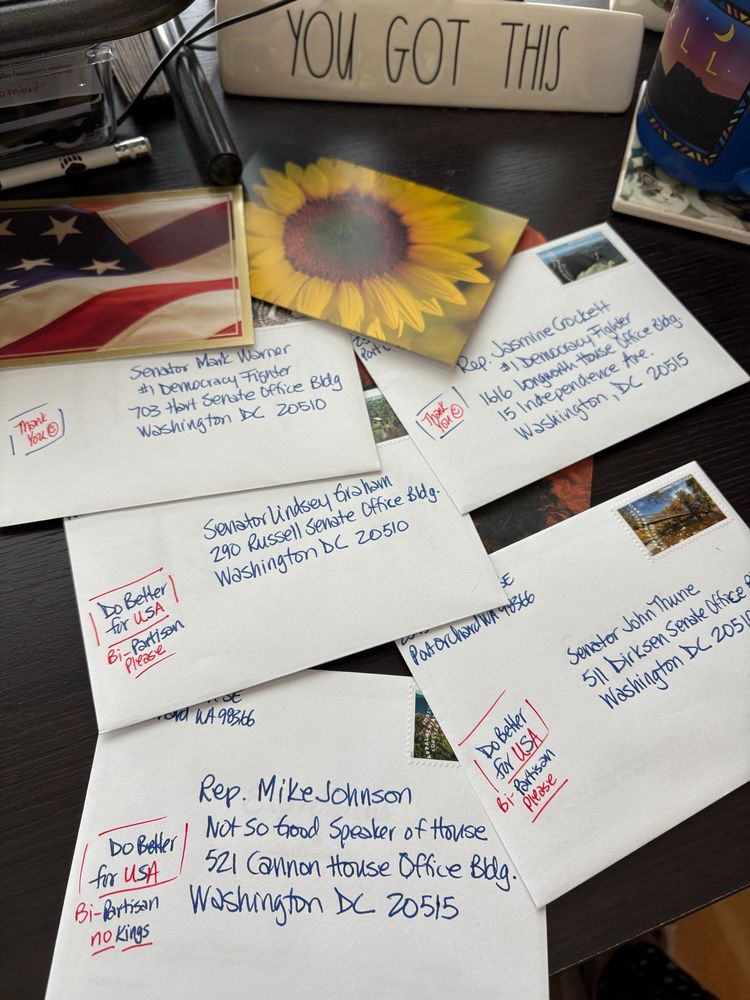 YOU GOT THIS
L L
Senator Mark Warner
#1 Democracy Fighter
703 Hart Senate Office Bldg
Washington DC 20510
Thank
You
Rep. Jasmine Crockett
#1 Democracy Fighter
1616 Longworth House Office Bldg.
15 Independence Ave.
Washington, DC 20515
Thank
You
Senator Lindsey Graham
290 Russell Senate Office Bldg.
Washington DC 20510
Do Better
for USA
Bi-Partisan
Please
SE
Port Orchard WA 98366
Senator John Thune
511 Dirksen Senate Office B
Washington DC 20510
Do Better
for USA
Bi-Partisan
Please
SE
WA 98366
Rep. Mike Johnson
Not So Good Speaker of House
521 Cannon House Office Bldg.
Washington DC 20515
Do Better
for USA
Bi-Partisan
no Kings